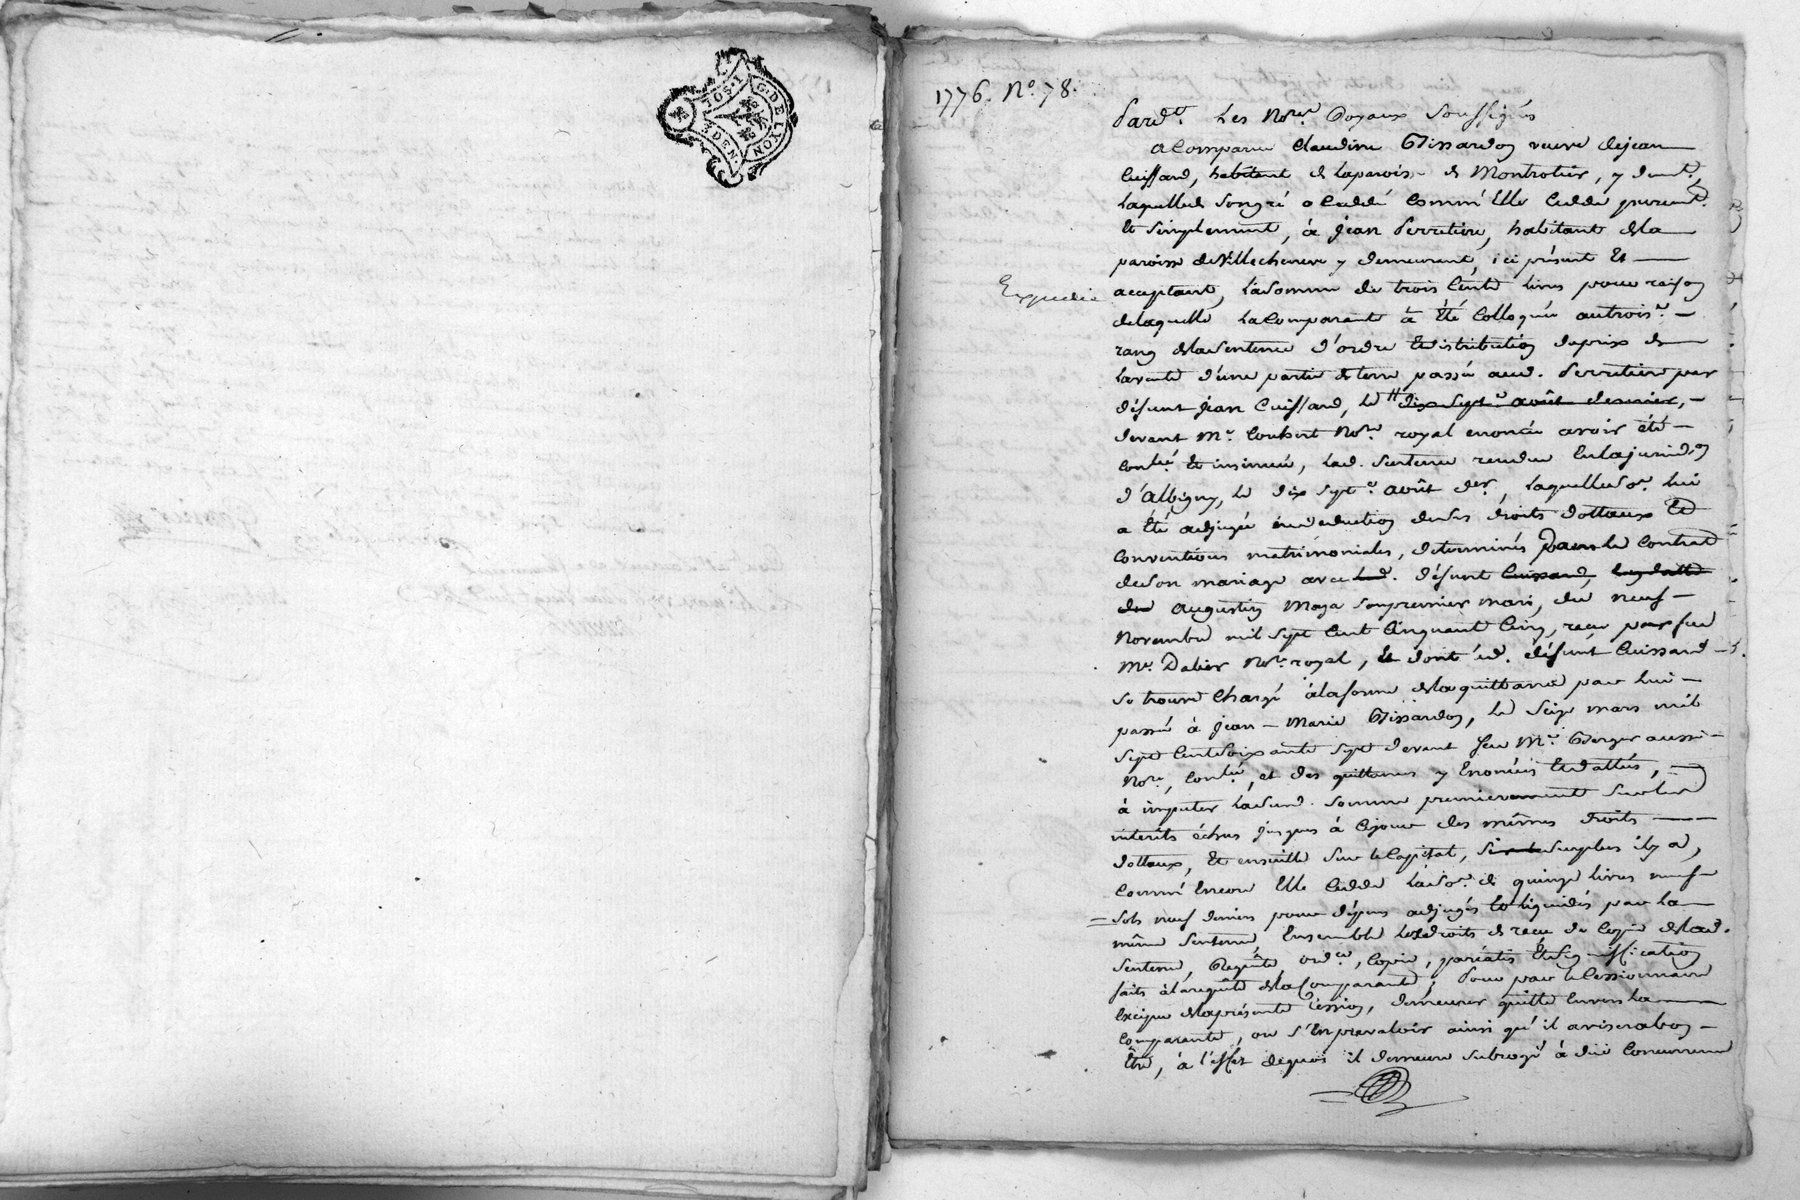 G. DE LYON
10 S. 1
4 DEN.
1776. N.º 78.
Pard.t Les No.res Royaux Soussignés
a Comparu Claudine Bissardon veuve de jean
Cuissard, habitant de la paroisse de Montrotier, y dem.t
Laquelle de Son gré a Cedde comm'Elle Cedde purem.t
Et Simplement, à jean Perretiere, habitant de la
paroisse de Villecheneve y demeurant, ici présent Et
Expediée
acceptant, La Somme de trois Cents livres pour raison
de laquelle La Comparante à Eté Colloquée au trois.e
rang de la Sentence d'ordre Et distribution du prix de
La vente d'une partie de terre passée aud. Perretiere par
défunt jean Cuissard, Le dix Sept.e août dernier,
devant M.e Coubert No.re royal enoncée avoir été
con.lée Et insinuée, Lad. Sentence rendue En la jurid.on
d'Albigny, Le dix Sept.e août der.r, Laquelle So.e Lui
a Eté adjugée en deduction de Ses droits dottaux Et
conventions matrimoniales, determinés dans le Contrat
de Son mariage avec Led. défunt Cuissard,
de augustin Maza Son premier mari, du neuf
Novembre mil Sept Cent Cinquante Cinq, reçu par feu
M.e Dalier No.re royal, Et dont Led. défunt Cuissard
Se trouve Chargé à la forme de la quittance par Lui
passée à jean-Marie Bissardon, Le Seize mars mil
Sept Cent Soixante Sept devant feu M.e Berger aussi
No.re, con.lée, et des quittances y Enoncées Et dattées,
à imputer Lad. Somme premierement Sur les
interêts échus jusques à Ce jour des mêmes droits
dottaux, Et ensuitte Sur le Capital, Si Surplus il y a,
Comm'Encore Elle Cedde La So.e de quinze livres neuf
Sols neuf deniers pour dépens adjugés Et liquidés par La
même Sentence, Ensemble Les droits de reçu de Copie de Lad.
Sentence, Requête ord.ce, Copie, pariatis Et Signification
faits à la requête de la Comparante, Pour par le Cessionnaire
Exciper de la présente Cession, demeurer quitte Envers La
Comparante, ou S'En prevaloir ainsi qu'il avisera bon
Etre, à l'effet de quoi il demeure Subrogé à due Concurrence